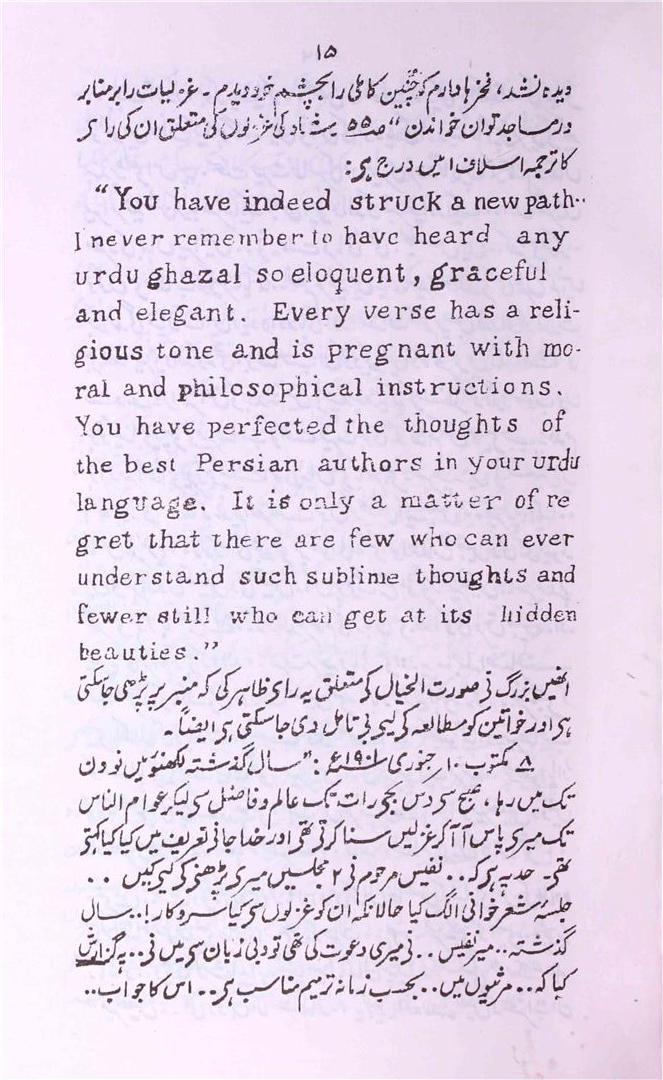 ۱۵
دیدہ نشد، فخر ہا دارم کہ چنین کاملی را بچشم خود دیدم۔ غزلیات را بر منابر
در مساجد توان خواندن“ ص۵۵ شاد کی غزلوں کی متعلق ان کی رای
کا ترجمہ اسلاف ا میں درج ہی:
“You have indeed struck a new path..
I never remember to have heard any
urdu ghazal so eloquent, graceful
and elegant. Every verse has a reli-
gious tone and is pregnant with mo-
ral and philosophical instructions.
You have perfected the thoughts of
the best Persian authors in your urdu
language. It is only a matter of re
gret that there are few who can ever
understand such sublime thoughts and
fewer still who can get at its hidden
beauties.”
انھیں بزرگ نی صورت الخیال کی متعلق یہ رای ظاہر کی کہ منبر پر پڑھی جاسکتی
ہی اور خواتین کو مطالعہ کی لیی بی تامل دی جاسکتی ہی ایضاً۔
۸ مکتوب ۱۰ جنوری ۱۹۰۱ء: ”سال گذشتہ لکھنؤ میں نو دن
تک میں رہا، صبح سی دس بجی رات تک عالم و فاضل سی لیکر عوام الناس
تک میری پاس آ آ کر غزلیں سنا کرتی تھی اور خدا جانی تعریف میں کیا کیا کہتی
تھی۔ حد یہ ہی کہ.. نفیس مرحوم نی ۲ مجلسیں میری پڑھنی کی لیی کیں ..
جلسۂ شعر خوانی الگ کیا حالانکہ ان کو غزلوں سی کیا سروکار!.. سال
گذشتہ.. میر نفیس .. نی میری دعوت کی تھی تو دبی زبان سی میں نی.. یہ گزارش
کیا کہ.. مرثیوں میں.. بحسب زمانہ ترمیم مناسب ہی.. اس کا جواب..